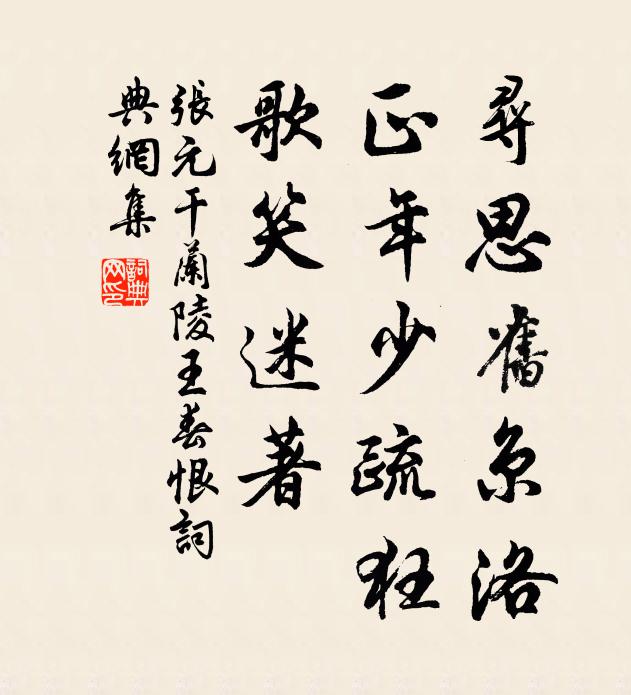 尋思舊京洛
正年少疏狂
歌笑迷著
張元干蘭陵王春恨詞
典網集
詞典網印